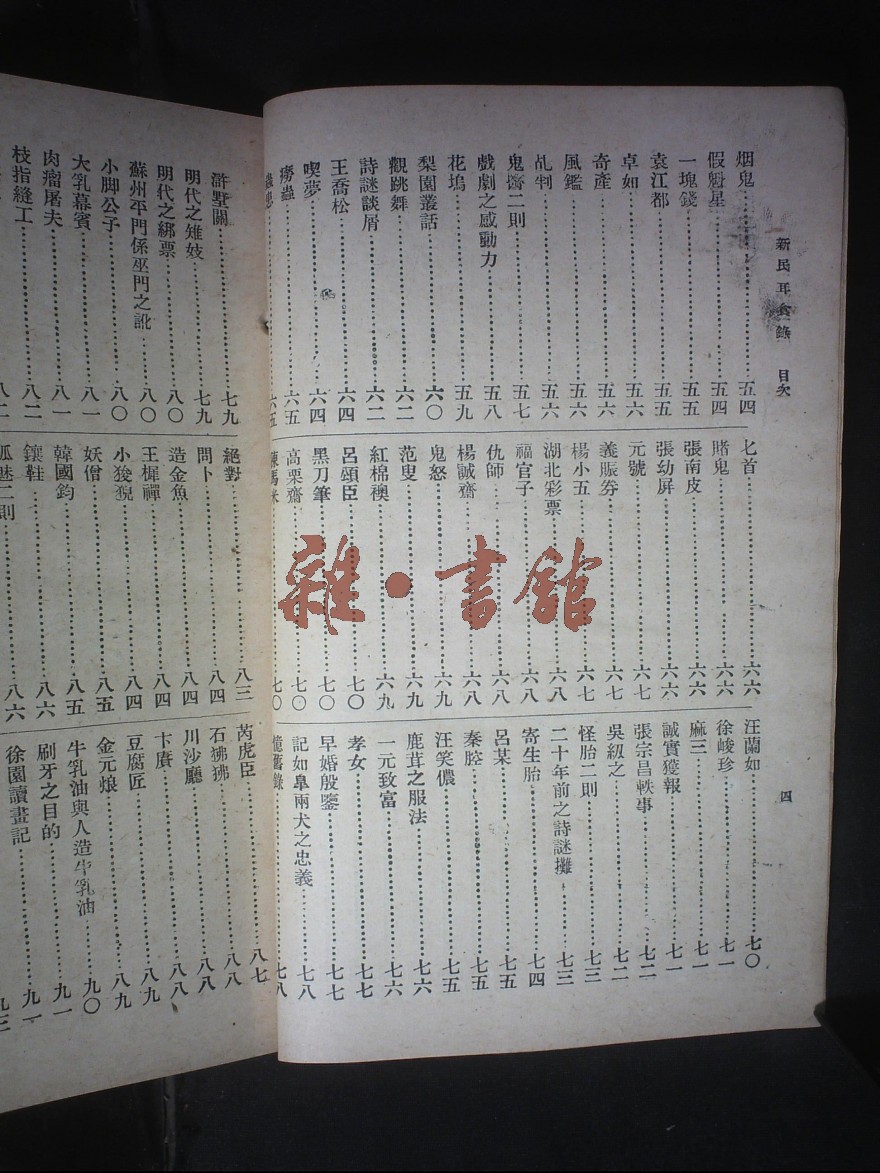 新民耳食錄 目次
烟鬼 五四
假魁星 五四
一塊錢 五五
袁江都 五五
卓如 五六
奇產 五六
風鑑 五六
乩判 五六
鬼儕二則 五七
戲劇之感動力 五八
花塢 五九
梨園叢話 六〇
觀跳舞 六二
詩謎談屑 六二
王喬松 六四
喫夢 六四
癆蟲 六五
六五
匕首 六六
賭鬼 六六
張南皮 六六
張幼屏 六六
元號 六七
義賑券 六七
楊小五 六七
湖北彩票 六八
福官子 六八
仇師 六八
楊誠齋 六八
鬼怒 六九
范叟 六九
紅棉襖 六九
呂頌臣 七〇
黑刀筆 七〇
高栗齋 七〇
七〇
汪蘭如 七〇
徐峻珍 七一
麻三 七一
誠實獲報 七一
張宗昌軼事 七二
吳紉之 七二
怪胎二則 七三
二十年前之詩謎攤 七三
寄生胎 七四
呂某 七五
秦腔 七五
汪笑儂 七五
鹿茸之服法 七六
一元致富 七六
孝女 七七
早婚殷鑒 七七
記如臯兩犬之忠義 七八
憶舊錄 七八
四
滸墅關 七九
明代之雉妓 七九
明代之綁票 八〇
蘇州平門係巫門之訛 八〇
小脚公子 八〇
大乳幕賓 八一
肉瘤屠夫 八一
枝指縫工 八二
八二
絕對 八三
問卜 八四
造金魚 八四
王樨禪 八四
小狻猊 八四
妖僧 八五
韓國鈞 八五
鑲鞋 八六
狐魅二則 八六
芮虎臣 八七
石狒狒 八八
川沙廳 八八
卞賡 八八
豆腐匠 八九
金元娘 八九
牛乳油與人造牛乳油 九〇
刷牙之目的 九一
徐園讀畫記 九一
九三
雜·書館